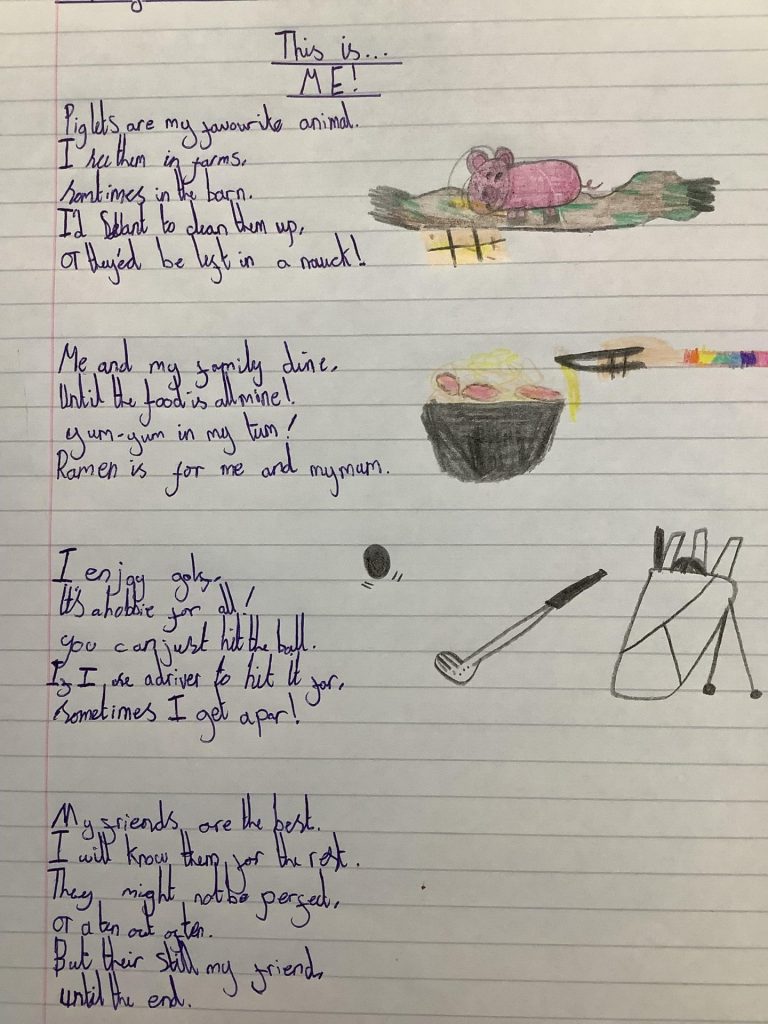 This is...
ME!
Piglets are my favourite animal.
I see them in farms,
somtimes in the barn.
I'd want to clean them up,
or they'ed be left in a muck!
Me and my family dine,
Until the food is all mine!
yum-yum in my tum!
Ramen is for me and my mum.
I enjoy golf,
It's a hobbie for all!
you can just hit the ball.
If I use a driver to hit it far,
sometimes I get a par!
My friends are the best.
I will know them for the rest.
They might not be perfect,
or a ten out of ten.
But their still my friend,
until the end.